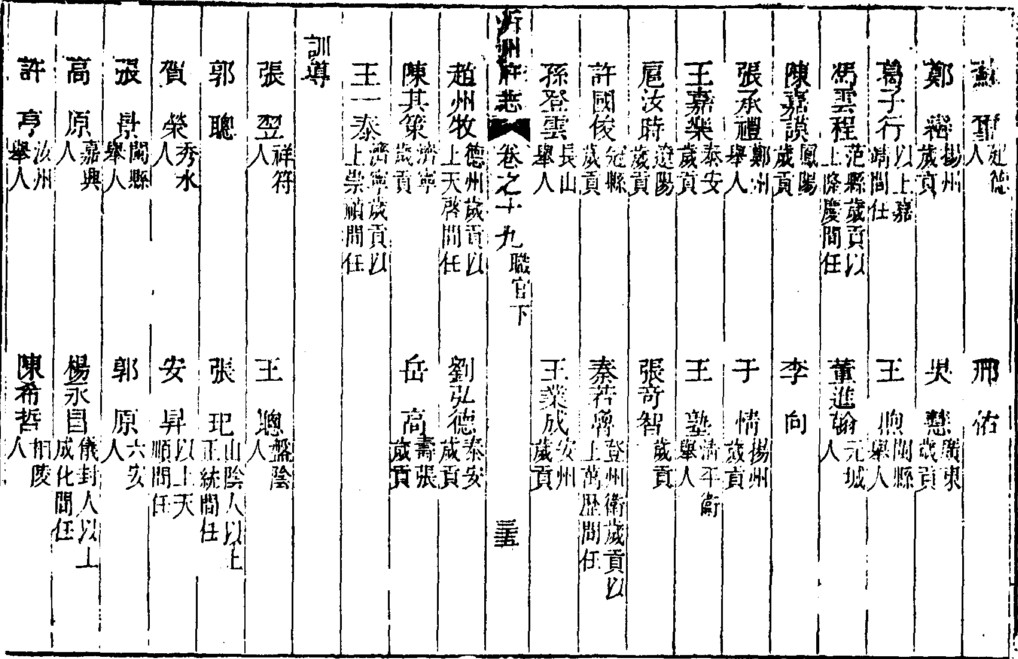 蘇　德人　邢佑
鄭　揚州歲貢　吳慧廣東歲貢
葛子行以上嘉靖間任　王煦閩縣舉人
馮雲程范縣歲貢以上隆慶間任　董進翰元城人
陳嘉謨鳳陽歲貢　李向
張承禮鄭州舉人　于情揚州歲貢
王嘉樂泰安歲貢　王塾清平衛舉人
扈汝時遼陽歲貢　張奇智歲貢
許國俊冠縣歲貢　秦若　登州衛歲貢以上萬歷間任
孫登雲長山舉人　王業成安州歲貢
沂州府志　卷之十九職官下　三五
趙州牧德州歲貢以上天啓間任　劉弘德泰安歲貢
陳其策濟寧歲貢　岳高壽張歲貢
王一泰濟寧歲貢以上崇禎間任
訓導
張翌祥符人　王聰盤陰人
郭聰　張玘山陰人以上正統間任
賀榮秀水人　安昇以上天順間任
張景閩縣舉人　郭原六安人
高原嘉興人　楊永昌儀封人以上成化間任
許亨汝州舉人　陳希哲相陵人